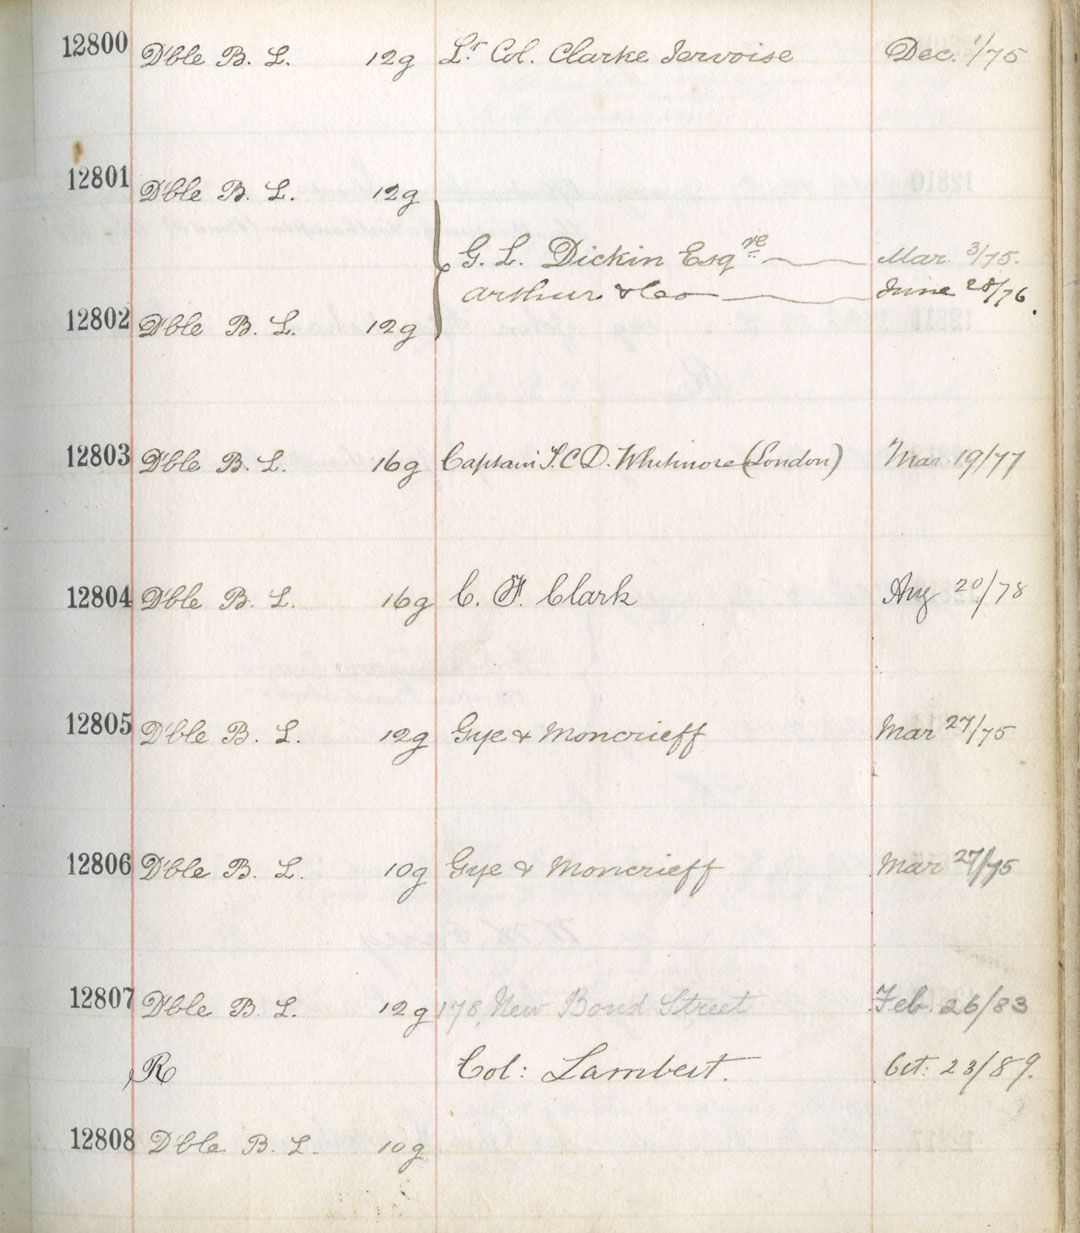 12800 D'ble B. L. 12g Lt Col. Clarke Jervoise Dec. 1/75
12801 D'ble B. L. 12g
G. L. Dickin Esqre Mar 3/75.
Arthur & Co June 28/76.
12802 D'ble B. L. 12g
12803 D'ble B. L. 16g Captain T.C.D. Whitmore (London) Mar 19/77
12804 D'ble B. L. 16g C. F. Clark Aug 20/78
12805 D'ble B. L. 12g Gye & Moncrieff Mar 27/75
12806 D'ble B. L. 10g Gye & Moncrieff Mar 27/75
12807 D'ble B. L. 12g 178, New Bond Street Feb. 26/83
R Col: Lambert. Oct: 23/89.
12808 D'ble B. L. 10g